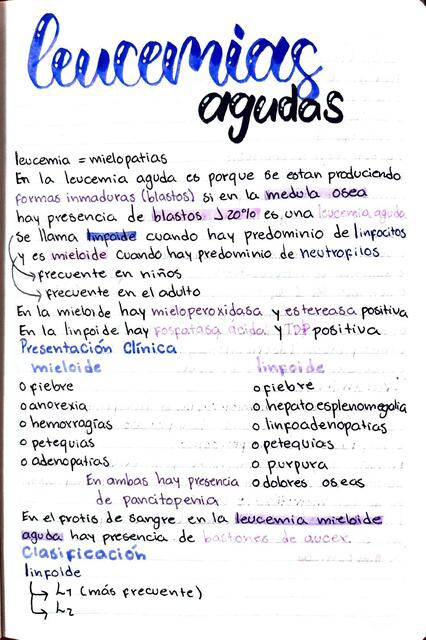 leucemias
agudas
leucemia = mielopatias
En la leucemia aguda es porque se estan produciendo
formas inmaduras (blastos) si en la medula osea
hay presencia de blastos ↓20% es una leucemia aguda
Se llama linfoide cuando hay predominio de linfocitos
y es mieloide cuando hay predominio de neutrofilos
→ frecuente en niños
→ frecuente en el adulto
En la mieloide hay mieloperoxidasa y estereasa positiva
En la linfoide hay fosfatasa acida y TDP positiva
Presentación Clínica
mieloide
o fiebre
o anorexia
o hemorragias
o petequias
o adenopatias
linfoide
o fiebre
o hepatoesplenomegalia
o linfoadenopatias
o petequias
o purpura
o dolores oseos
En ambas hay presencia
de pancitopenia
En el frotis de sangre en la leucemia mieloide
aguda hay presencia de bastones de aucer
Clasificación
linfoide
→ L1 (más frecuente)
→ L2